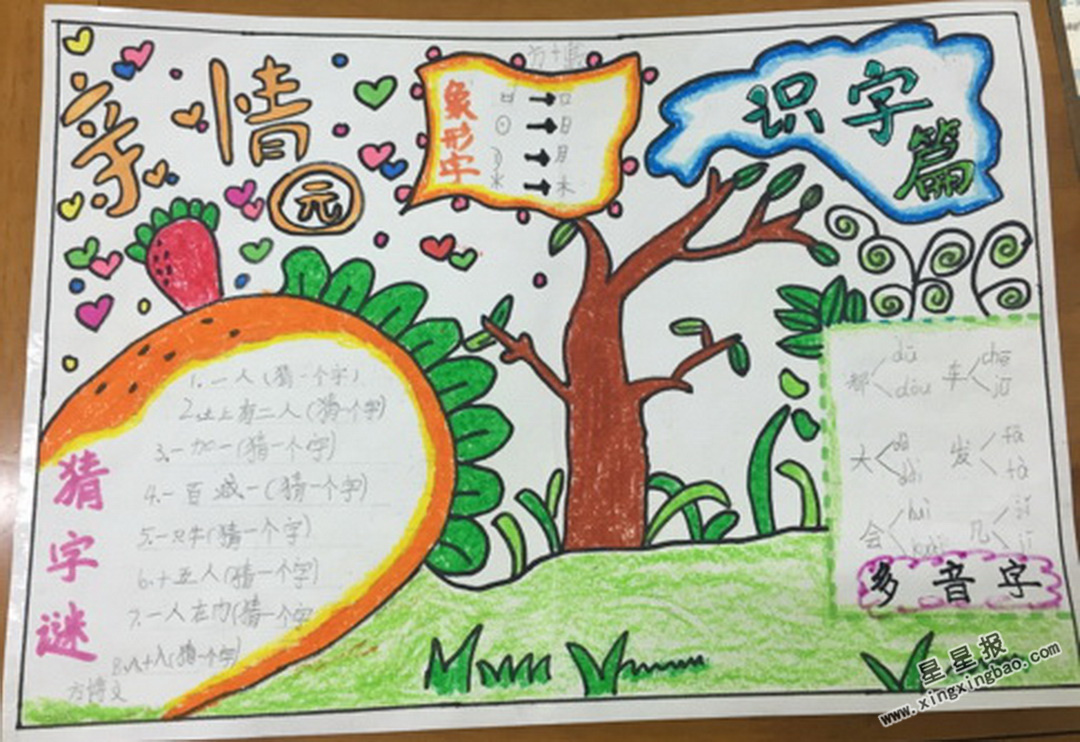 亲情园
象形字
口
⊙ 日
月
木
识字篇
猜字谜
1.一人(猜一个字)
2.土上有二人(猜一个字)
3.一加一(猜一个字)
4.一百减一(猜一个字)
5.一只牛(猜一个字)
6.十五人(猜一个字)
7.一人在内(猜一个字
8.八十八(猜一个字)
方博文
都 dū dōu
车 chē jū
大 dà dài
发 fā fà
会 huì kuài
几 jǐ jī
多音字
星星报
www.xingxingbao.com